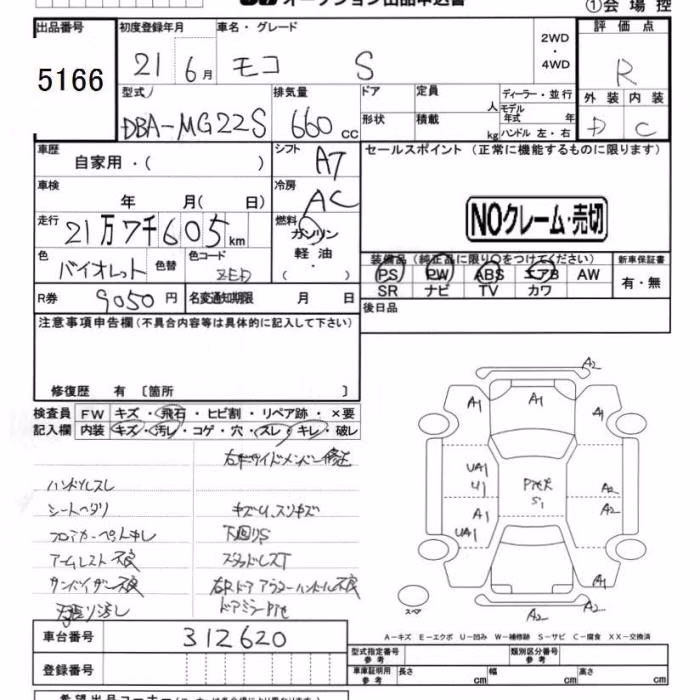 オークション出品申込書
①会場控
出品番号 初度登録年月 車名・グレード 2WD・4WD 評価点
5166 21 6月 モコ S R
型式 排気量 ドア 定員 人 ディーラー・並行 外装 内装
DBA-MG22S 660cc 形状 積載 kg モデル年式 年 D C
ハンドル 左・右
車歴 自家用・( ) シフト A7 セールスポイント (正常に機能するものに限ります)
車検 年 月( 日) 冷房 AC
NOクレーム・売切
走行 21万7千605km 燃料 ガソリン
軽油・( )
色 バイオレット 色替 色コード ZED
装備品(純正品に限り〇をつけてください) 新車保証書
PS PW ABS エアB AW 有・無
SR ナビ TV カワ
R券 9050円 名変通知期限 月 日 後日品
注意事項申告欄(不具合内容等は具体的に記入して下さい)
修復歴 有 〔箇所 〕
検査員 FW キズ・飛石・ヒビ割・リペア跡・×要
記入欄 内装 キズ・汚レ・コゲ・穴・スレ・キレ・破レ
右Fサイドメンバー修正
ハンドルスレ
シートヘタリ キズU、スリキズ
フロアカーペットキレ 下回りS
アームレスト不良 スタッドレスT
サンバイザー不良 右Rドアアウターハンドル不良
ドアミラーP他
A2
A1 A1 A1
UA1
U1
A1
UA1
S1
A2
A2
A1 A1 A1
A2 A2
スペア
A-キズ E-エクボ U-凹み W-補修跡 S-サビ C-腐食 XX-交換済
車台番号 312620
登録番号
型式指定番号 参考 類別区分番号 参考
車庫証明用 参考 長さ cm 幅 cm 高さ cm
希望出品コーナー